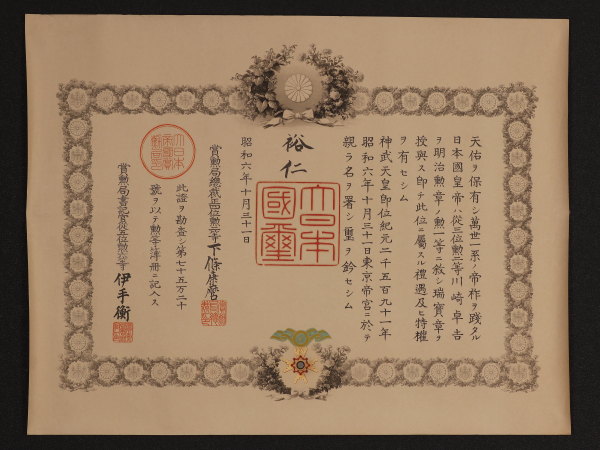 天佑ヲ保有シ萬世一系ノ帝祚ヲ踐タル
日本國皇帝ハ從三位勲二等川崎卓吉
ヲ明治勲章ノ勲一等ニ敘シ瑞寳章ヲ
授與ス即チ此位ニ屬スル禮遇及ヒ特權
ヲ有セシム
神武天皇即位紀元二千五百九十一年
昭和六年十月三十一日東京帝宮ニ於テ
親ラ名ヲ署シ璽ヲ鈐セシム
裕仁
大日本國璽
昭和六年十月三十一日
賞勲局總裁正四位勲二等下條康麿
此證ヲ勘査シ第七十五万二十
號ヲ以テ勲等簿冊ニ記入ス
賞勲局書記官從五位勲六等伊手衡